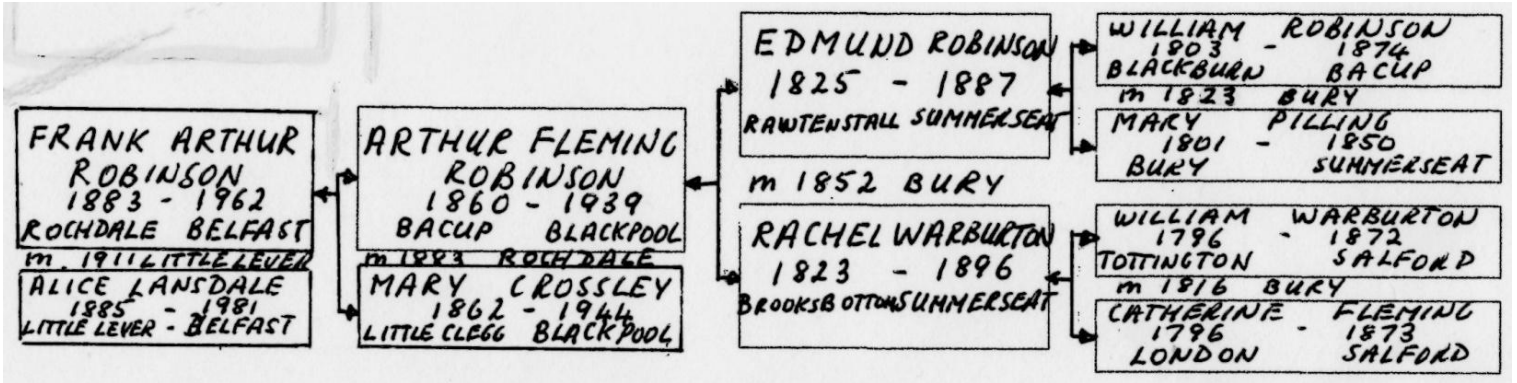 FRANK ARTHUR
ROBINSON
1883 - 1962
ROCHDALE BELFAST
m. 1911 LITTLE LEVER
ALICE LANSDALE
1885 - 1981
LITTLE LEVER - BELFAST
ARTHUR FLEMING
ROBINSON
1860 - 1939
BACUP BLACKPOOL
m 1883 ROCHDALE
MARY CROSSLEY
1862 - 1944
LITTLE CLEGG BLACKPOOL
EDMUND ROBINSON
1825 - 1887
RAWTENSTALL SUMMERSEAT
m 1852 BURY
RACHEL WARBURTON
1823 - 1896
BROOKSBOTTOM SUMMERSEAT
WILLIAM ROBINSON
1803 - 1874
BLACKBURN BACUP
m 1823 BURY
MARY PILLING
1801 - 1850
BURY SUMMERSEAT
WILLIAM WARBURTON
1796 - 1872
TOTTINGTON SALFORD
m 1816 BURY
CATHERINE FLEMING
1796 - 1873
LONDON SALFORD